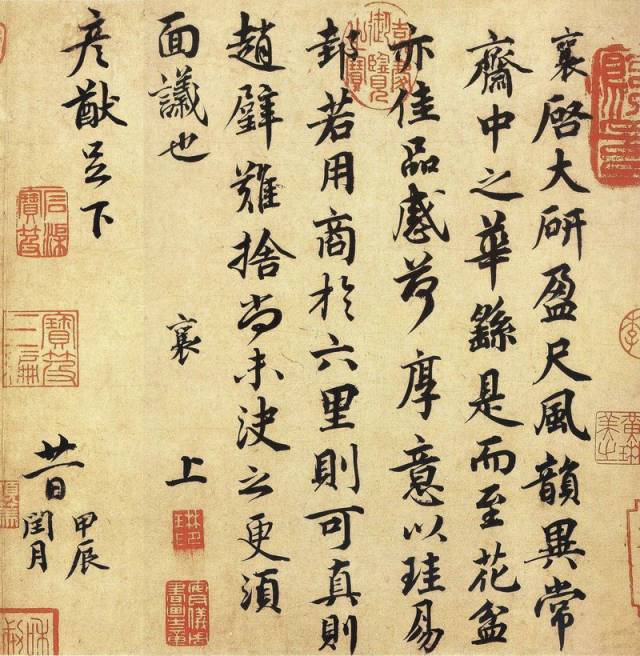 襄啓大研盈尺風韻異常
齋中之華繇是而至花盆
亦佳品感荷厚意以珪易
邽若用商於六里則可真則
趙璧難捨尚未決之更須
面議也 襄 上
彥猷足下 廿一日
甲辰
閏月